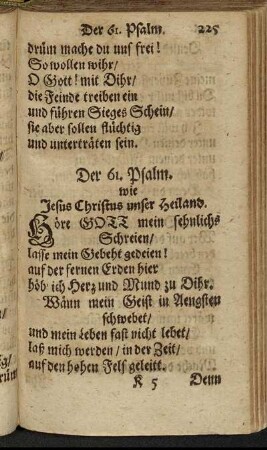 Der 61. Psalm. 225
drüm mache du uns frei!
So wollen wihr/
O Gott! mit Dihr/
die Feinde treiben ein
und führen Sieges Schein/
sie aber sollen flüchtig
und unterträten sein.
Der 61. Psalm.
wie
Jesus Christus unser Heiland.
Höre GOTT mein sehnlichs
Schreien/
lasse mein Gebeht gedeien!
auf der fernen Erden hier
höb ich Herz und Mund zu Dihr.
Wann mein Geist in Aengsten
schwebet/
und mein Leben fast nicht lebet/
laß mich werden/ in der Zeit/
auf den hohen Fels geleitt.
K 5 Denn